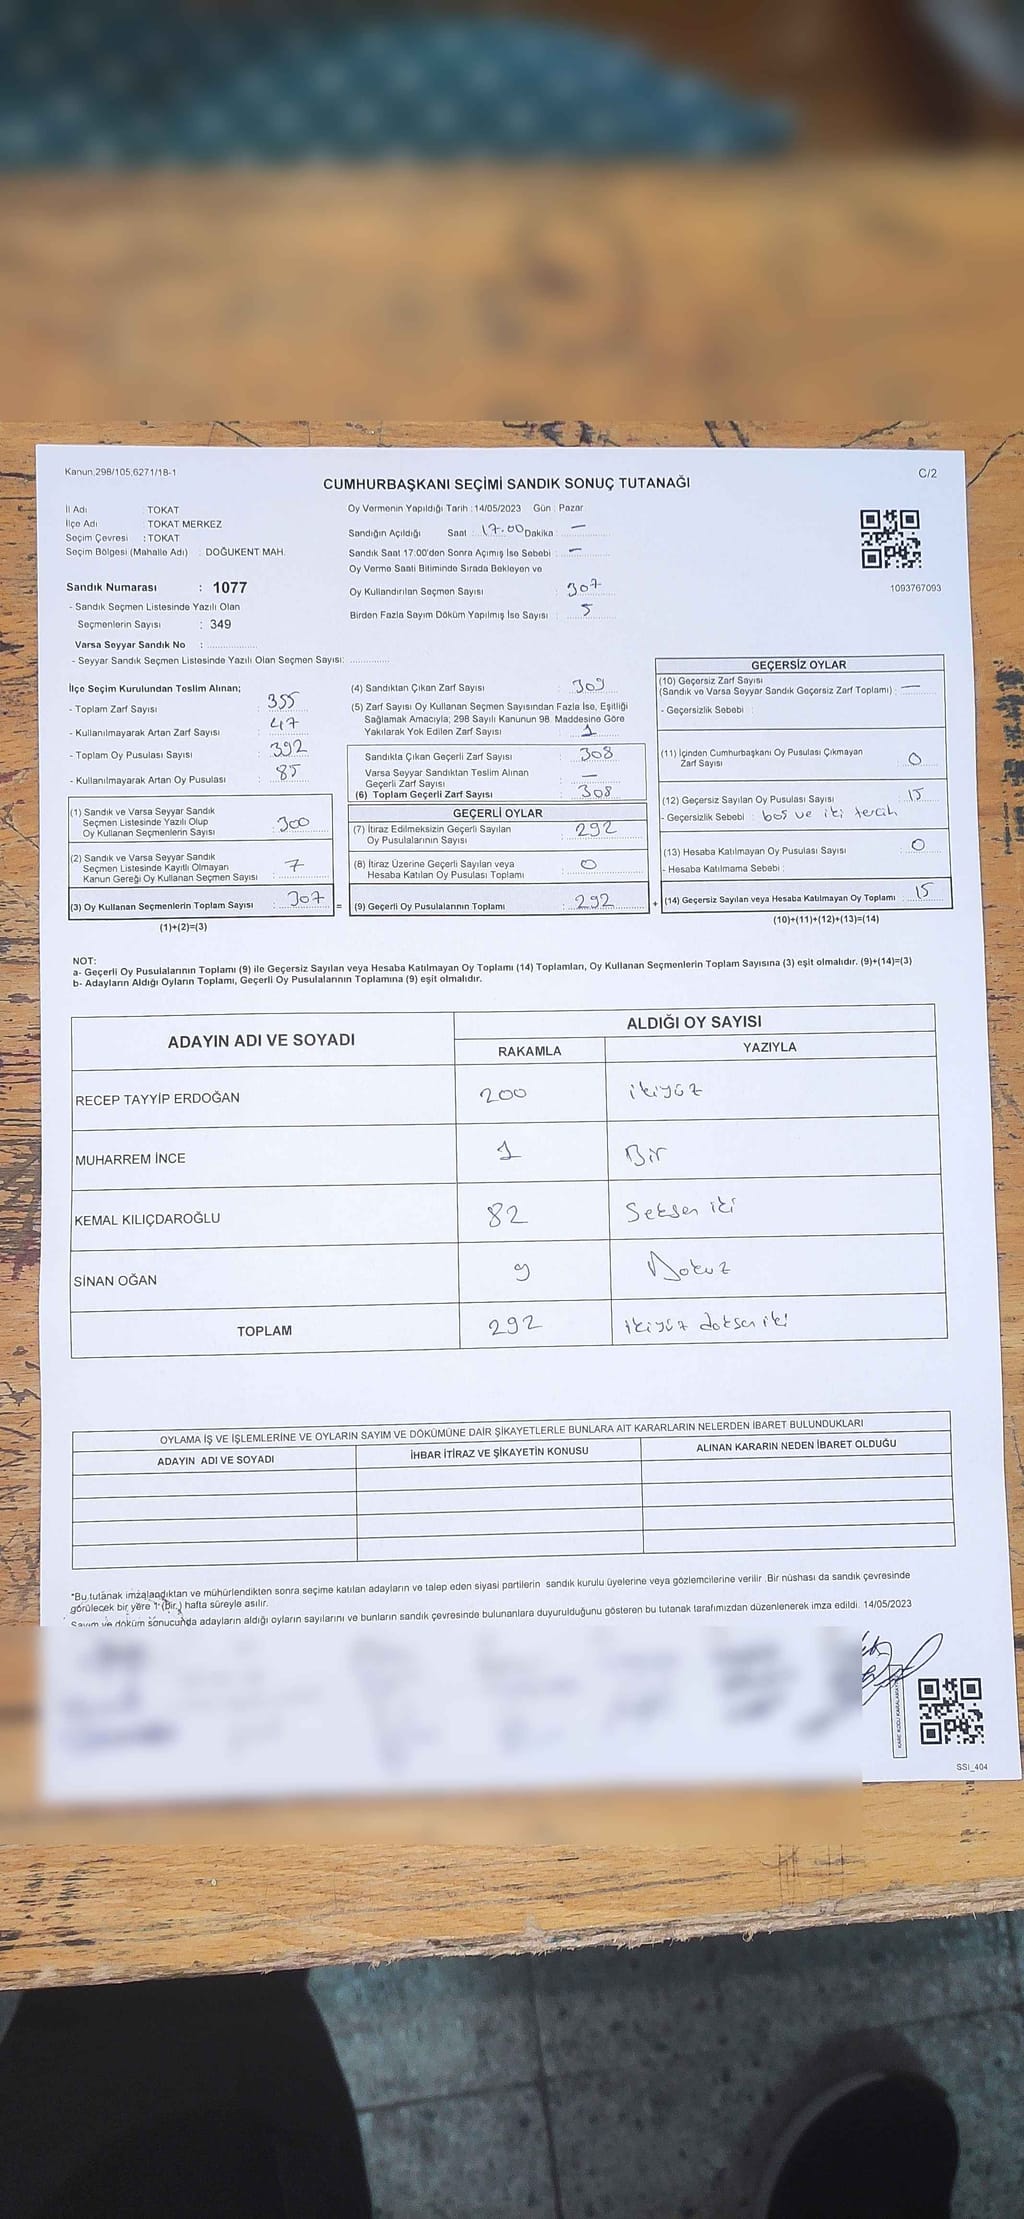 Kanun.298/105,6271/18-1
C/2
CUMHURBAŞKANI SEÇİMİ SANDIK SONUÇ TUTANAĞI
İl Adı : TOKAT
İlçe Adı : TOKAT MERKEZ
Seçim Çevresi : TOKAT
Seçim Bölgesi (Mahalle Adı) : DOĞUKENT MAH.
Sandık Numarası : 1077
- Sandık Seçmen Listesinde Yazılı Olan
Seçmenlerin Sayısı : 349
Varsa Seyyar Sandık No :
- Seyyar Sandık Seçmen Listesinde Yazılı Olan Seçmen Sayısı:
Oy Vermenin Yapıldığı Tarih :14/05/2023 Gün : Pazar
Sandığın Açıldığı Saat : 17.00 Dakika : —
Sandık Saat 17:00'den Sonra Açımış İse Sebebi : —
Oy Verme Saati Bitiminde Sırada Bekleyen ve
Oy Kullandırılan Seçmen Sayısı : 307
Birden Fazla Sayım Döküm Yapılmış İse Sayısı : 5
1093767093
İlçe Seçim Kurulundan Teslim Alınan;
- Toplam Zarf Sayısı : 355
- Kullanılmayarak Artan Zarf Sayısı : 47
- Toplam Oy Pusulası Sayısı : 392
- Kullanılmayarak Artan Oy Pusulası : 85
(1) Sandık ve Varsa Seyyar Sandık
Seçmen Listesinde Yazılı Olup
Oy Kullanan Seçmenlerin Sayısı : 300
(2) Sandık ve Varsa Seyyar Sandık
Seçmen Listesinde Kayıtlı Olmayan
Kanun Gereği Oy Kullanan Seçmen Sayısı : 7
(3) Oy Kullanan Seçmenlerin Toplam Sayısı : 307
(1)+(2)=(3)
(4) Sandıktan Çıkan Zarf Sayısı : 309
(5) Zarf Sayısı Oy Kullanan Seçmen Sayısından Fazla İse, Eşitliği
Sağlamak Amacıyla; 298 Sayılı Kanunun 98. Maddesine Göre
Yakılarak Yok Edilen Zarf Sayısı : 1
Sandıkla Çıkan Geçerli Zarf Sayısı : 308
Varsa Seyyar Sandıktan Teslim Alınan
Geçerli Zarf Sayısı : —
(6) Toplam Geçerli Zarf Sayısı : 308
GEÇERLİ OYLAR
(7) İtiraz Edilmeksizin Geçerli Sayılan
Oy Pusulalarının Sayısı : 292
(8) İtiraz Üzerine Geçerli Sayılan veya
Hesaba Katılan Oy Pusulası Toplamı : 0
= (9) Geçerli Oy Pusulalarının Toplamı : 292
GEÇERSİZ OYLAR
(10) Geçersiz Zarf Sayısı
(Sandık ve Varsa Seyyar Sandık Geçersiz Zarf Toplamı) : —
- Geçersizlik Sebebi :
(11) İçinden Cumhurbaşkanı Oy Pusulası Çıkmayan
Zarf Sayısı : 0
(12) Geçersiz Sayılan Oy Pusulası Sayısı : 15
- Geçersizlik Sebebi : boş ve iki tercih
(13) Hesaba Katılmayan Oy Pusulası Sayısı : 0
- Hesaba Katılmama Sebebi :
+ (14) Geçersiz Sayılan veya Hesaba Katılmayan Oy Toplamı : 15
(10)+(11)+(12)+(13)=(14)
NOT:
a- Geçerli Oy Pusulalarının Toplamı (9) ile Geçersiz Sayılan veya Hesaba Katılmayan Oy Toplamı (14) Toplamları, Oy Kullanan Seçmenlerin Toplam Sayısına (3) eşit olmalıdır. (9)+(14)=(3)
b- Adayların Aldığı Oyların Toplamı, Geçerli Oy Pusulalarının Toplamına (9) eşit olmalıdır.
ADAYIN ADI VE SOYADI
ALDIĞI OY SAYISI
RAKAMLA YAZIYLA
RECEP TAYYİP ERDOĞAN 200 ikiyüz
MUHARREM İNCE 1 Bir
KEMAL KILIÇDAROĞLU 82 Seksen iki
SİNAN OĞAN 9 Dokuz
TOPLAM 292 ikiyüz doksan iki
OYLAMA İŞ VE İŞLEMLERİNE VE OYLARIN SAYIM VE DÖKÜMÜNE DAİR ŞİKAYETLERLE BUNLARA AİT KARARLARIN NELERDEN İBARET BULUNDUKLARI
ADAYIN ADI VE SOYADI İHBAR İTİRAZ VE ŞİKAYETİN KONUSU ALINAN KARARIN NEDEN İBARET OLDUĞU
*Bu tutanak imzalandıktan ve mühürlendikten sonra seçime katılan adayların ve talep eden siyasi partilerin sandık kurulu üyelerine veya gözlemcilerine verilir .Bir nüshası da sandık çevresinde
görülecek bir yere 1 (Bir.) hafta süreyle asılır.
Sayım ve döküm sonucunda adayların aldığı oyların sayılarını ve bunların sandık çevresinde bulunanlara duyurulduğunu gösteren bu tutanak tarafımızdan düzenlenerek imza edildi. 14/05/2023
SSI_404